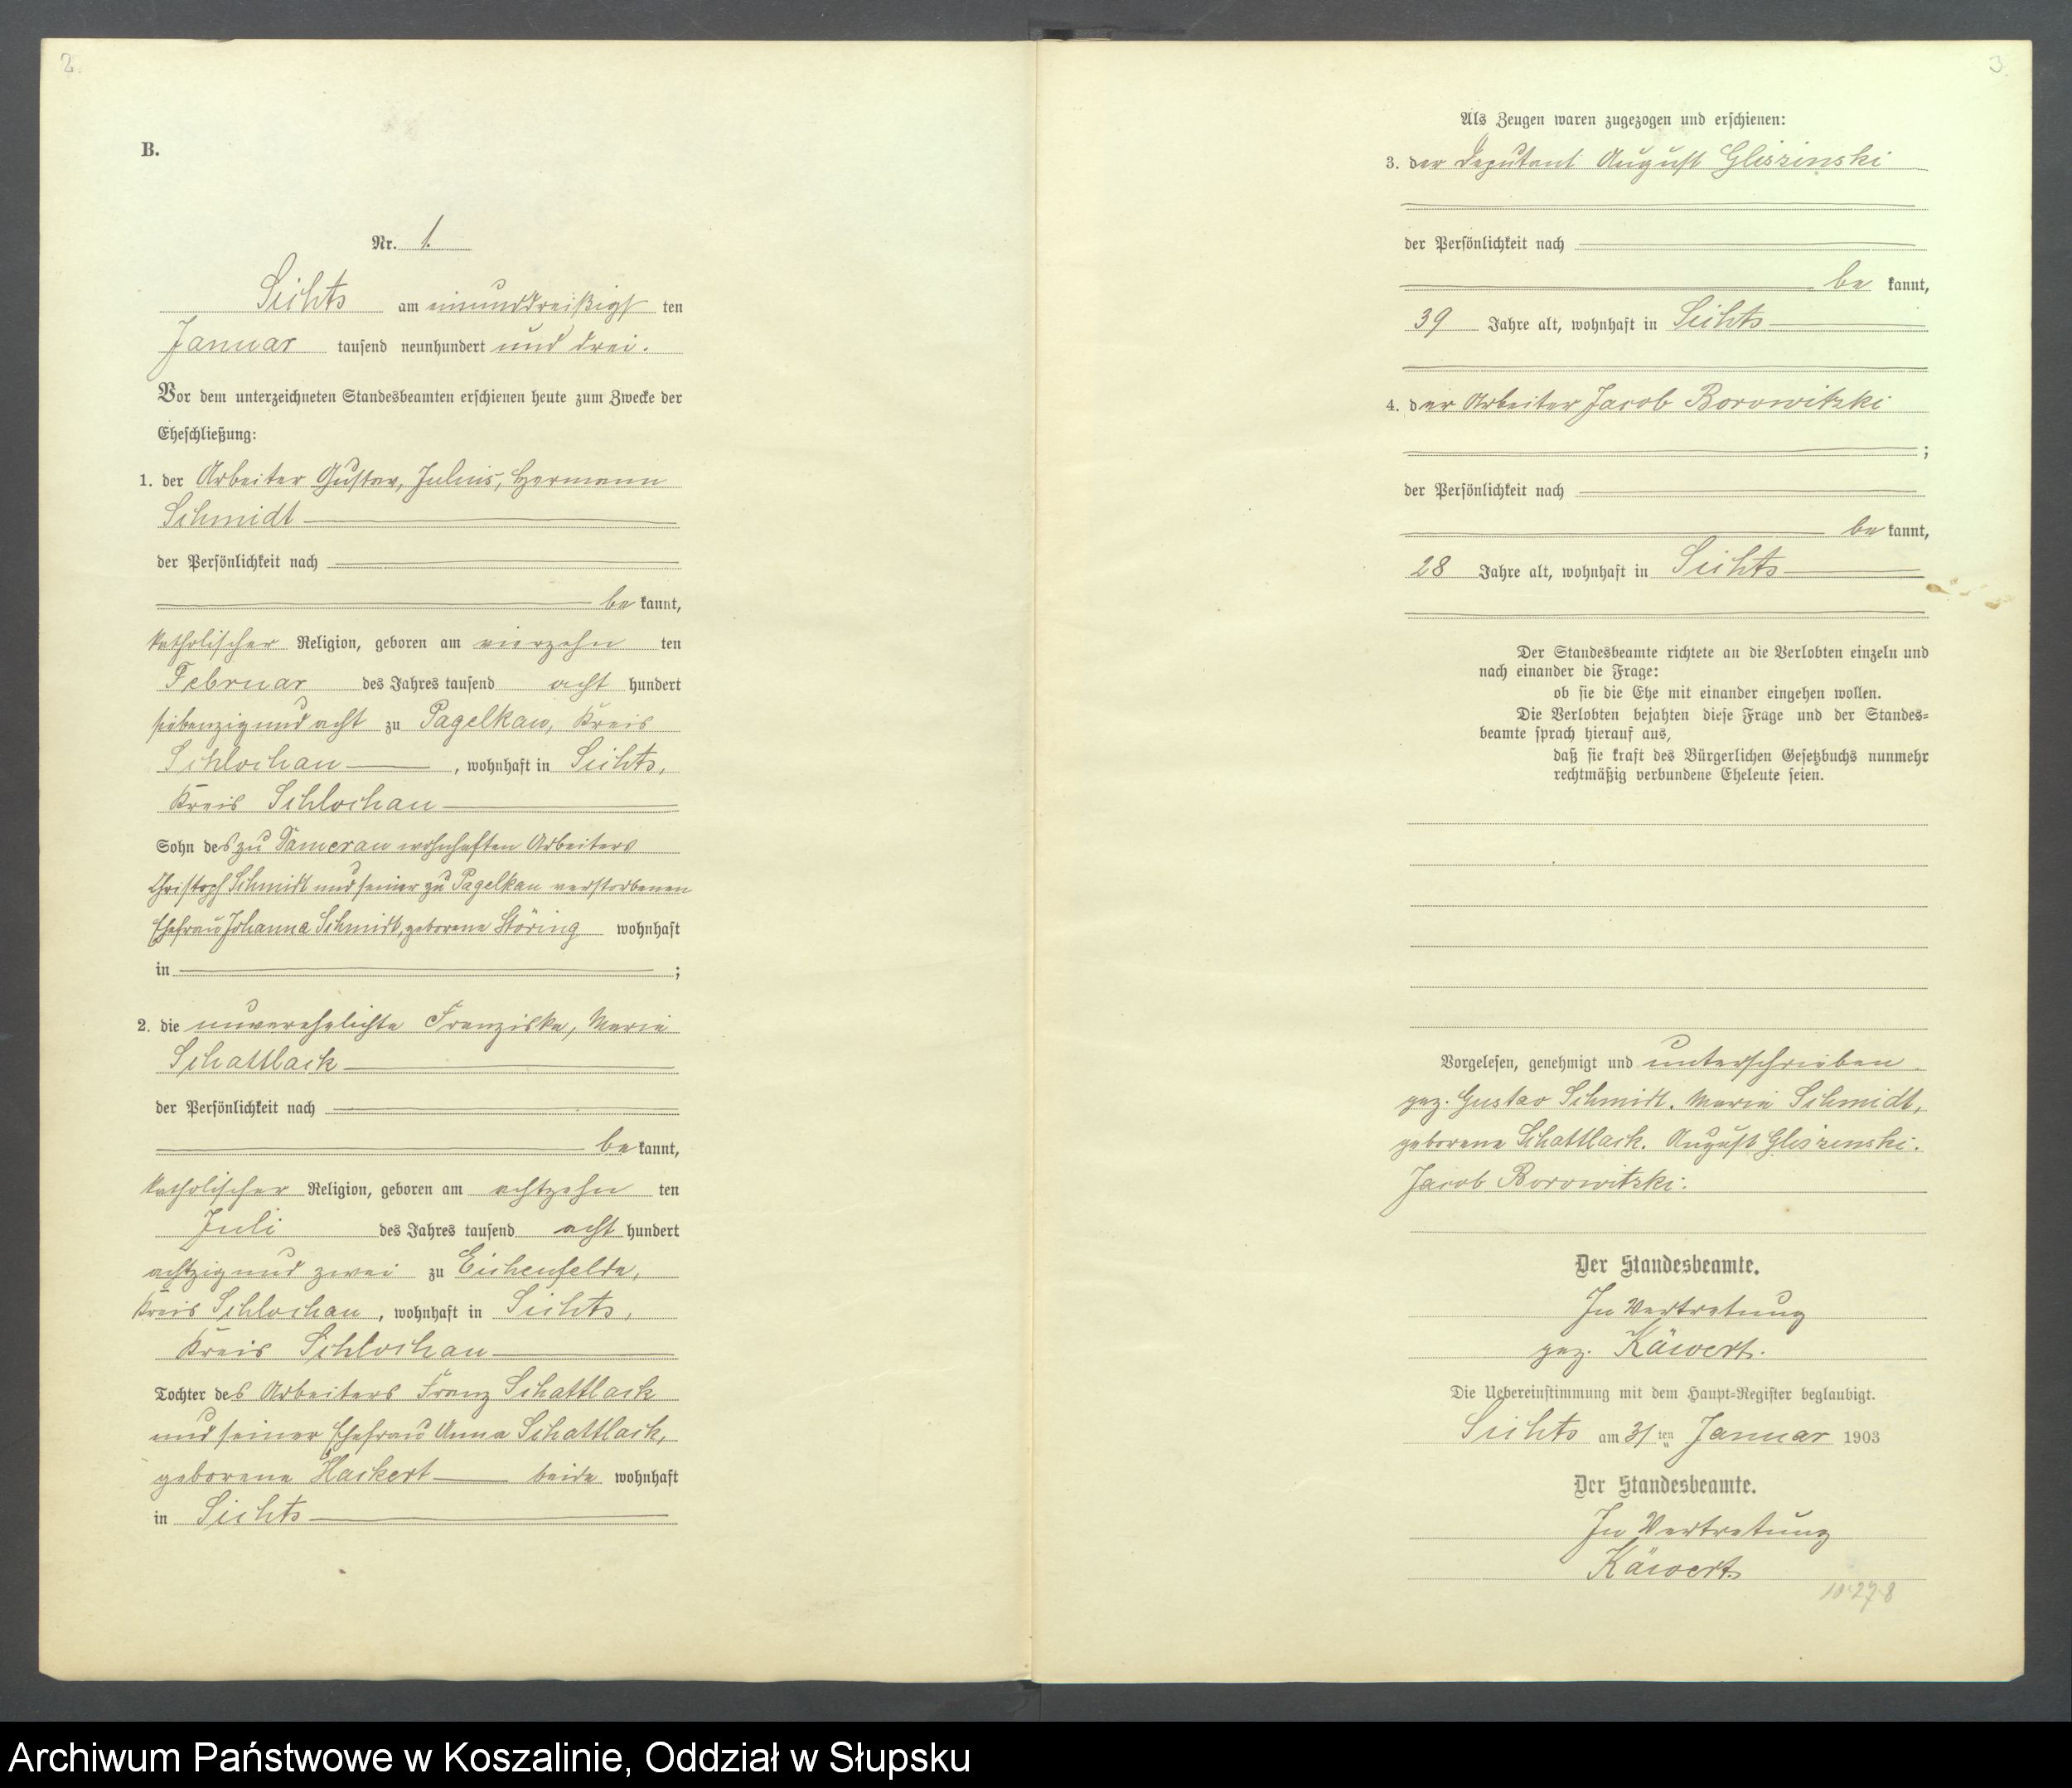 2.
B.
Nr. 1.
Sichts am einunddreißigst ten
Januar tausend neunhundert und drei.
Vor dem unterzeichneten Standesbeamten erschienen heute zum Zwecke der
Eheschließung:
1. der Arbeiter Gustav, Julius, Hermann
Schmidt
der Persönlichkeit nach
be kannt,
katholischer Religion, geboren am vierzehn ten
Februar des Jahres tausend acht hundert
siebenzig und acht zu Pagelkau, Kreis
Schlochau, wohnhaft in Sichts,
Kreis Schlochau
Sohn des zu Damerau wohnhaften Arbeiters
Christoph Schmidt und seiner zu Pagelkau verstorbenen
Ehefrau Johanna Schmidt, geborene Störing wohnhaft
in ;
2. die unverehelichte Franziska, Maria
Schattlack
der Persönlichkeit nach
be kannt,
katholischer Religion, geboren am achtzehn ten
Juli des Jahres tausend acht hundert
achtzig und zwei zu Eichenfelde,
Kreis Schlochau, wohnhaft in Sichts,
Kreis Schlochau
Tochter des Arbeiters Franz Schattlack
und seiner Ehefrau Anna Schattlack,
geborene Hackert beide wohnhaft
in Sichts
3.
Als Zeugen waren zugezogen und erschienen:
3. der Deputant August Gliszinski
der Persönlichkeit nach
be kannt,
39 Jahre alt, wohnhaft in Sichts
4. der Arbeiter Jacob Borowitzki
;
der Persönlichkeit nach
be kannt,
28 Jahre alt, wohnhaft in Sichts
Der Standesbeamte richtete an die Verlobten einzeln und
nach einander die Frage:
ob sie die Ehe mit einander eingehen wollen.
Die Verlobten bejahten diese Frage und der Standes=
beamte sprach hierauf aus,
daß sie kraft des Bürgerlichen Gesetzbuchs nunmehr
rechtmäßig verbundene Eheleute seien.
Vorgelesen, genehmigt und unterschrieben.
gez. Gustav Schmidt. Maria Schmidt,
geborene Schattlack. August Gliszenski.
Jacob Borowitzki.
Der Standesbeamte.
In Vertretung
gez. Käwert.
Die Uebereinstimmung mit dem Haupt=Register beglaubigt.
Sichts am 31ten Januar 1903
Der Standesbeamte.
In Vertretung
Käwert.
Archiwum Państwowe w Koszalinie, Oddział w Słupsku